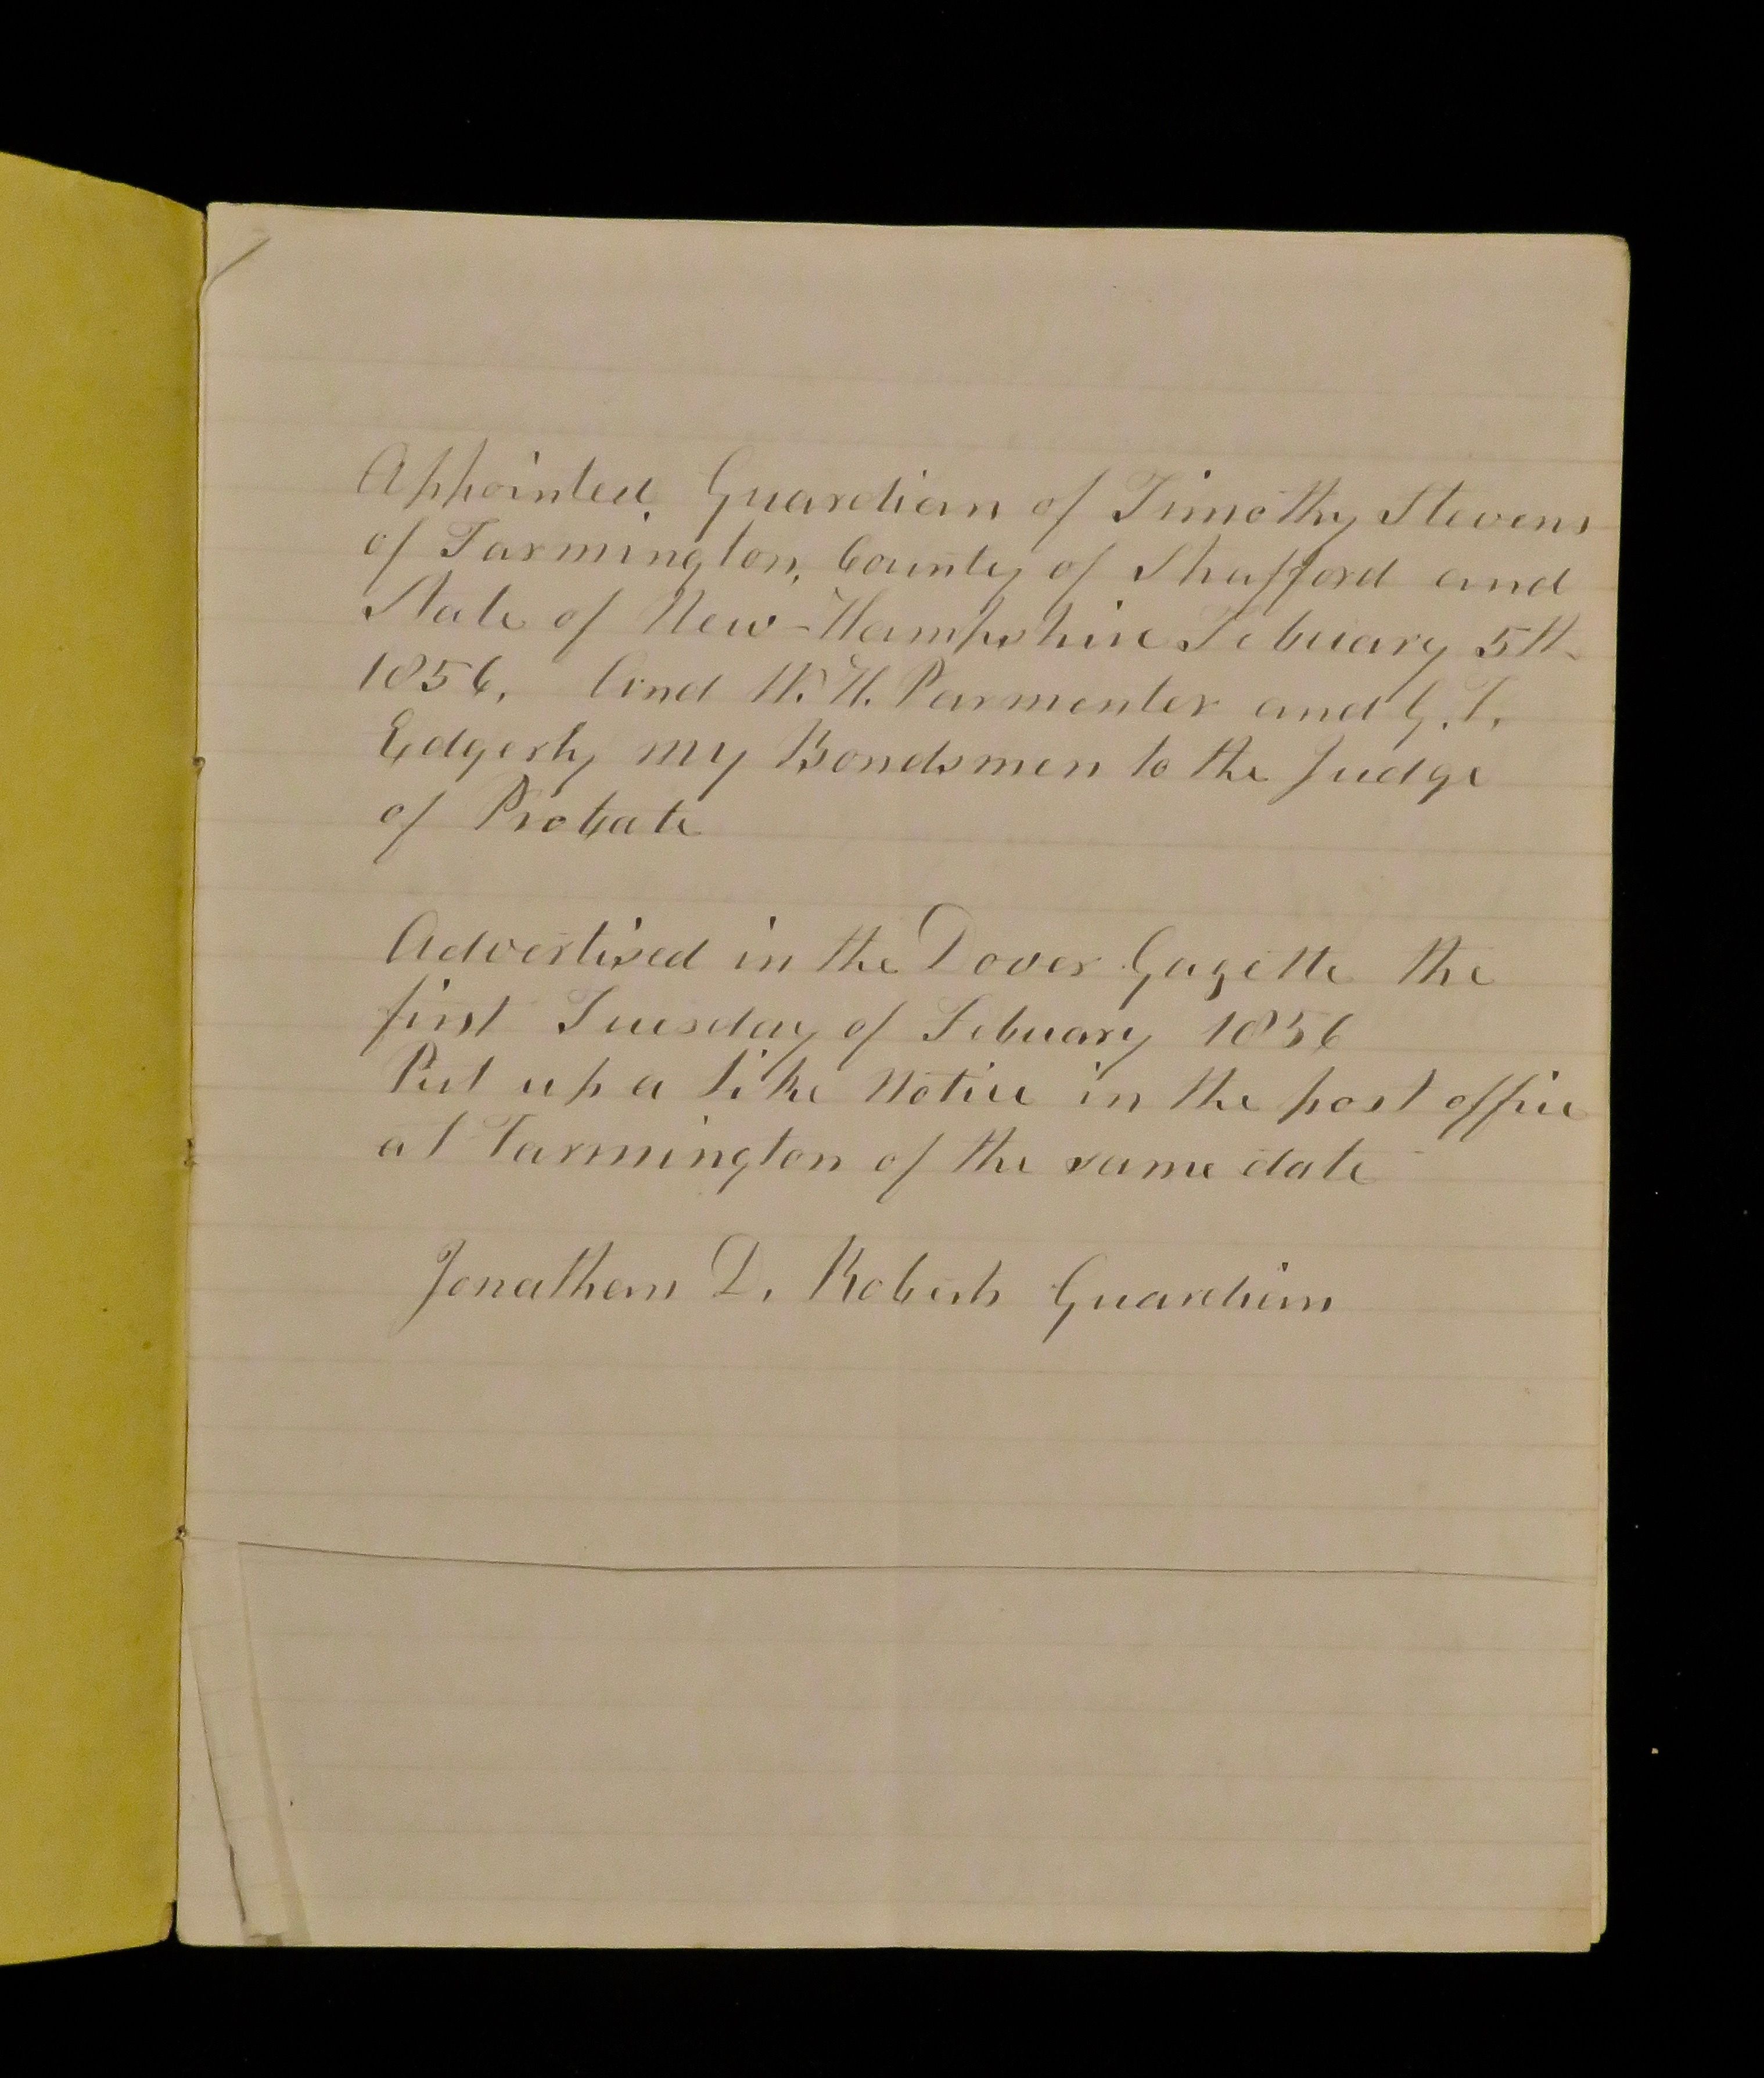 Appointed, Guardian of Timothy Stevens
of Farmington, County of Strafford and
State of New-Hampshire Febuary 5th
1856, And H. H. Parmenter and G. T.
Edgerly my Bondsmen to the Judge
of Probate
Advertised in the Dover Gazette the
first Tuesday of Febuary 1856
Put up a like Notice in the post office
at Farmington of the same date
Jonathan D. Roberts Guardian